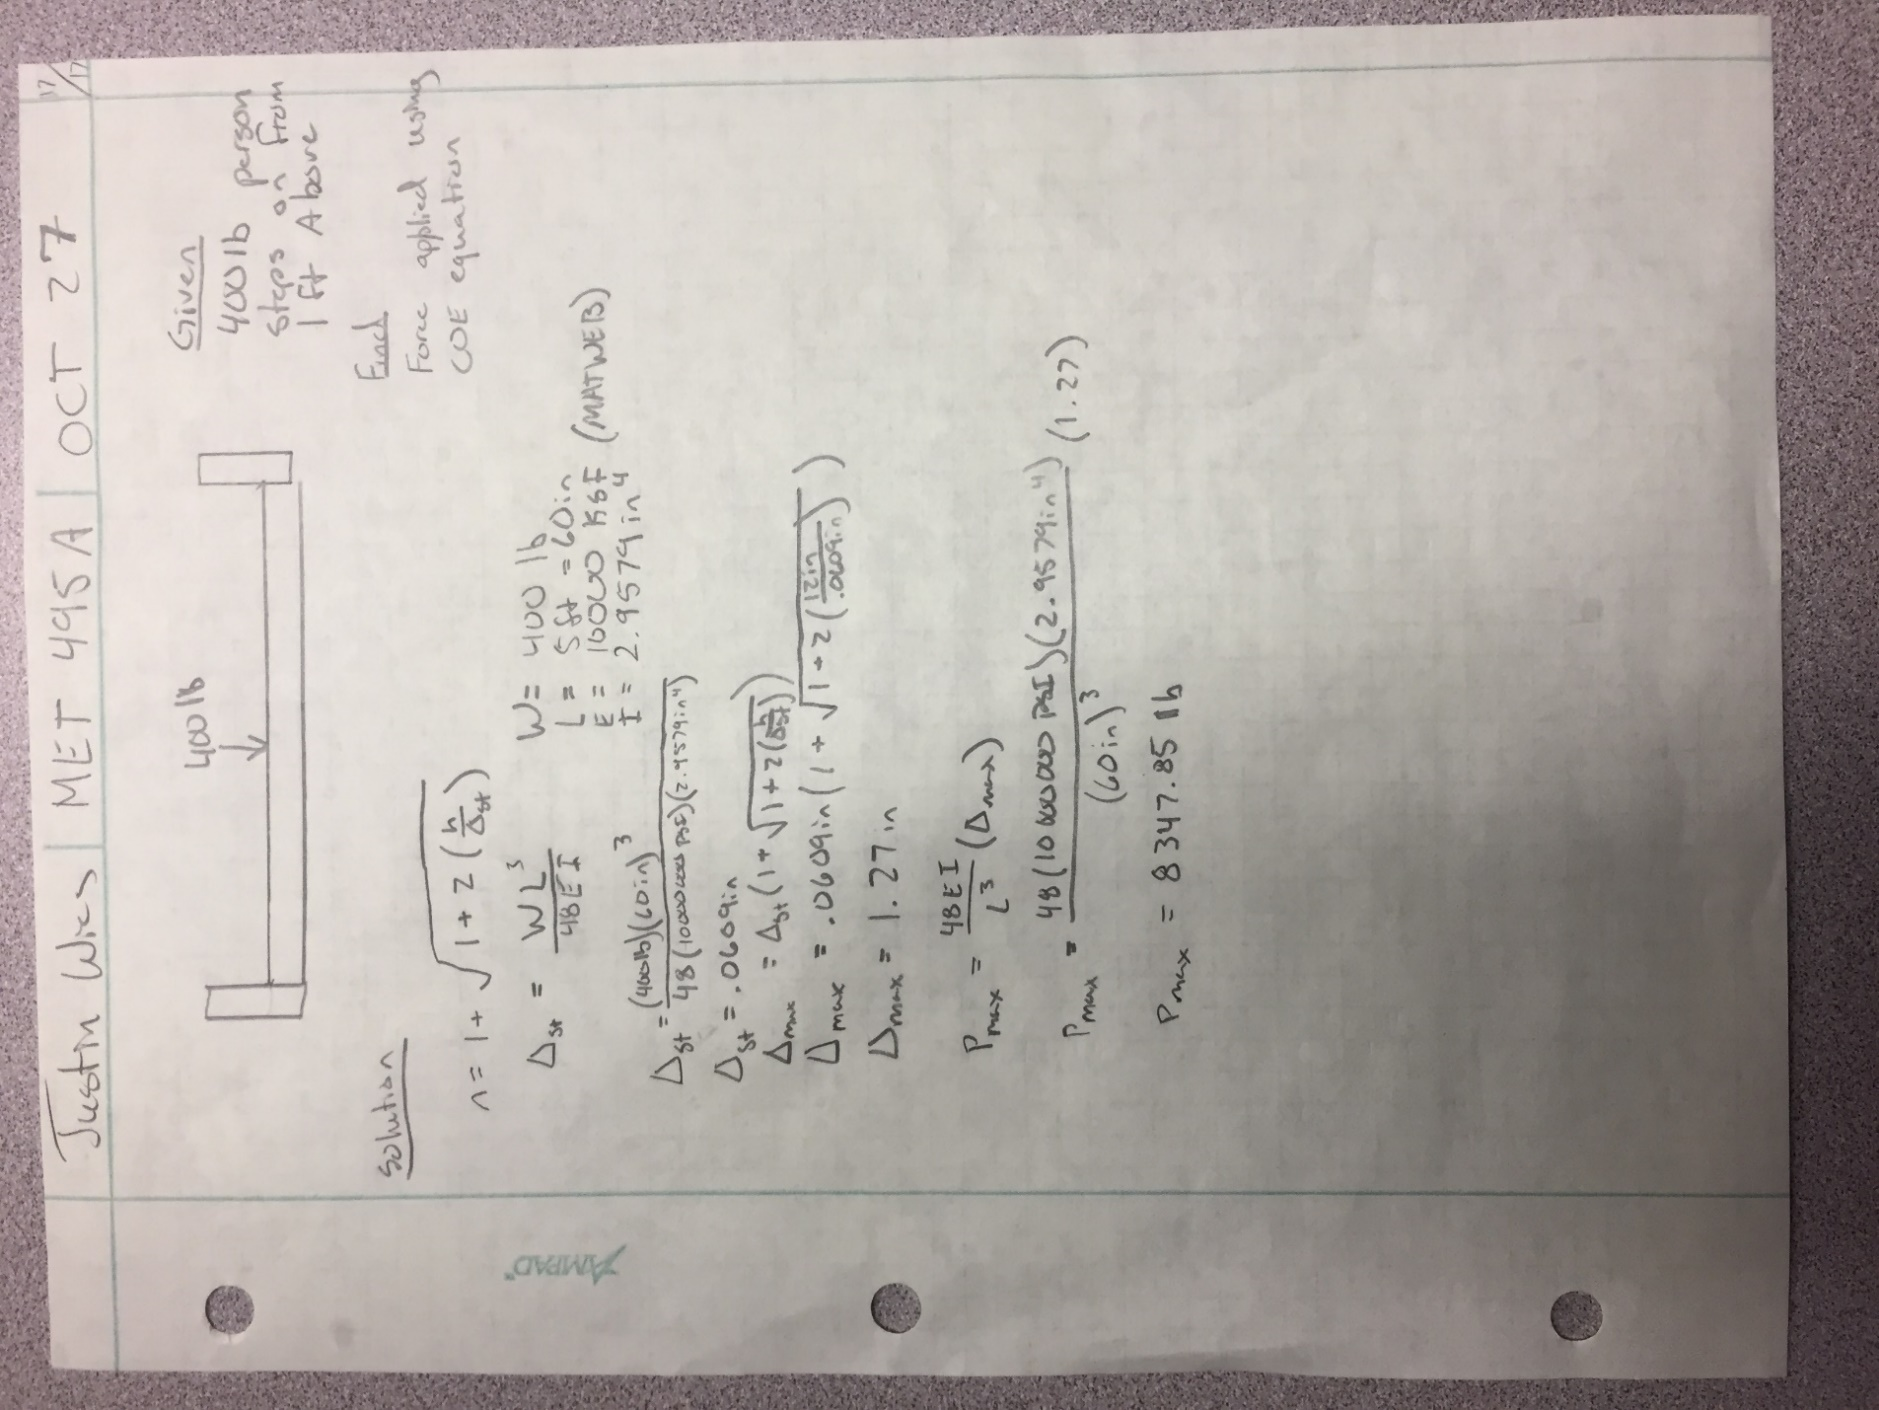 Justin Wies | MET 495A | OCT 27 17/17
400lb
Given
400lb person
steps on from
1 ft Above
Find
Force applied using
COE equation
Solution
n = 1 + √(1 + 2(h/Δst))
Δst = WL³/48EI
W = 400 lb
L = 5ft = 60in
E = 10000 KSI (MATWEB)
I = 2.9579in⁴
Δst = (400lb)(60in)³/48(10000000 PSI)(2.9579in⁴)
Δst = .0609in
Δmax = Δst(1 + √(1 + 2(h/Δst)))
Δmax = .0609in(1 + √(1 + 2(12in/.0609in)))
Δmax = 1.27in
Pmax = 48EI/L³ (Δmax)
Pmax = 48(10000000 PSI)(2.9579in⁴)/(60in)³ (1.27)
Pmax = 8347.85 lb
AMPAD